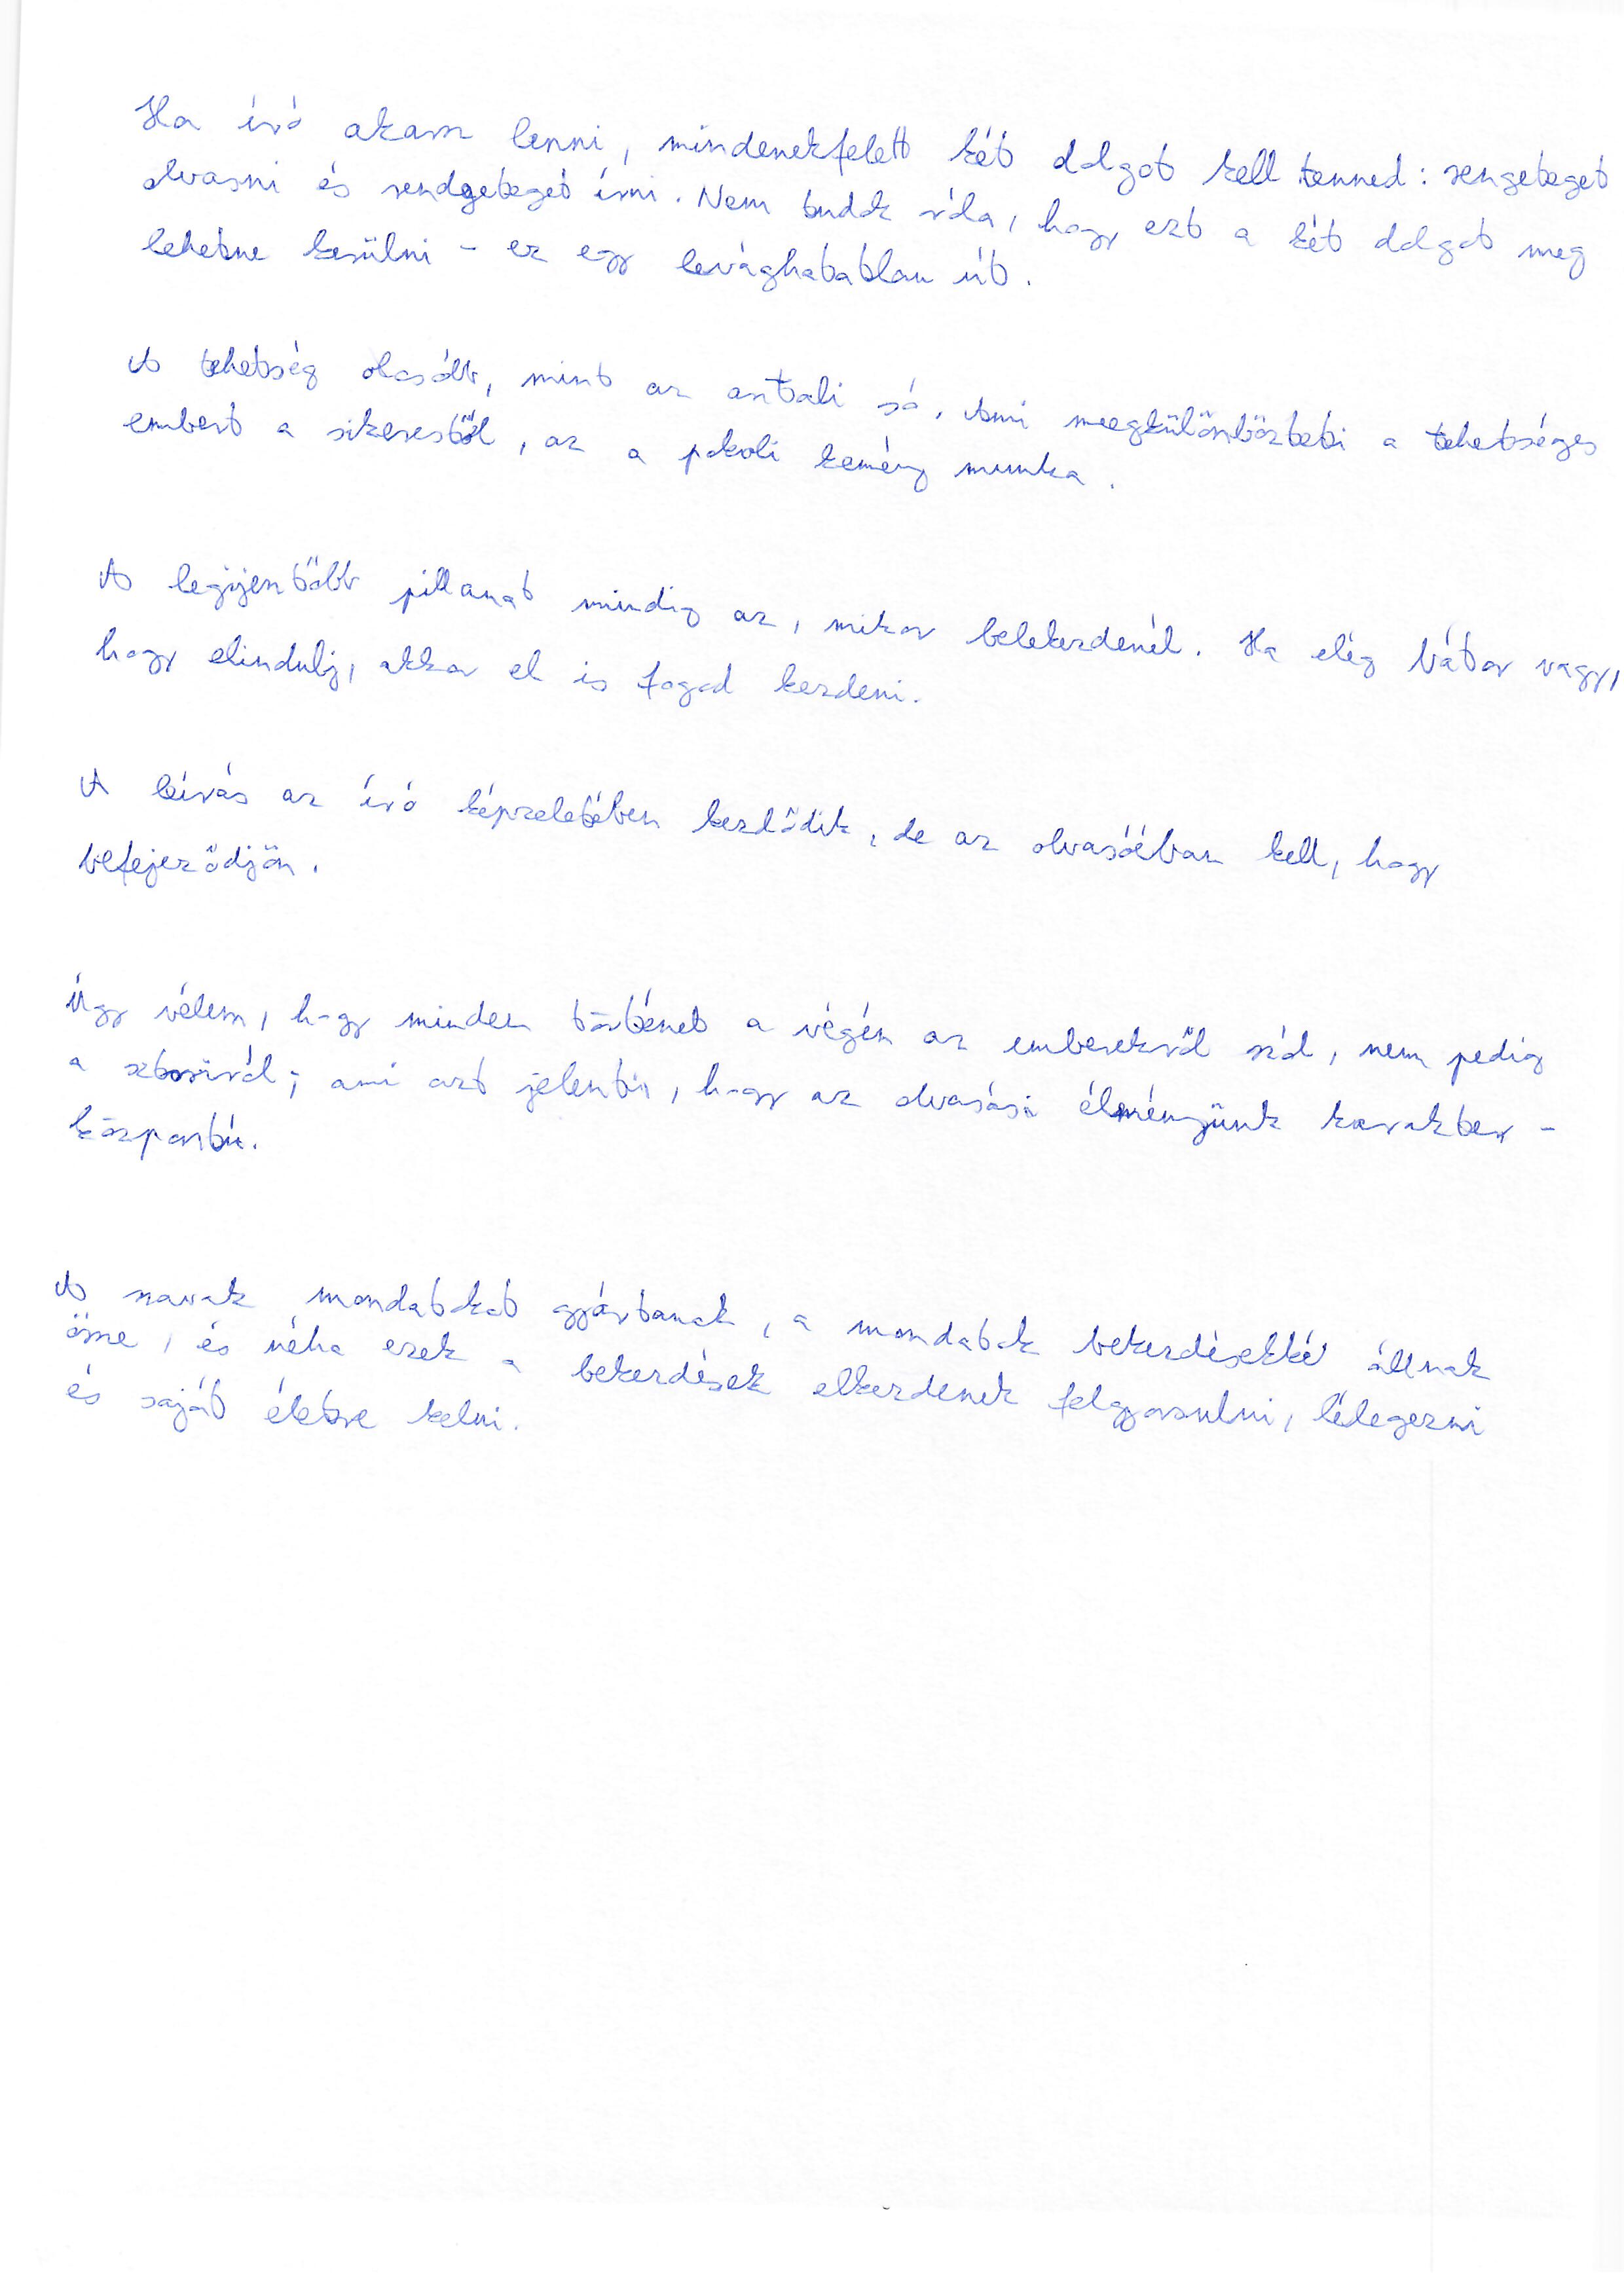 Ha író akarsz lenni, mindenekfelett két dolgot kell tenned: rengeteget
olvasni és rendgeteget írni. Nem tudok róla, hogy ezt a két dolgot meg
lehetne kerülni - ez egy levághatatlan út.
A tehetség olcsóbb, mint az asztali só. Ami meegkülönbözteti a tehetséges
embert a sikerestől, az a pokoli kemény munka.
A legijjentőbb pillanat mindig az, mikor belekezdenél. Ha elég bátor vagy,
hogy elindulj, akkor el is fogod kezdeni.
A leírás az író képzeletében kezdődik, de az olvasóéban kell, hogy
befejeződjön.
Úgy vélem, hogy minden történet a végén az emberekről szól, nem pedig
a sztoriról; ami azt jelenti, hogy az olvasási élményünk karakter -
központú.
A szavak mondatokat gyártanak, a mondatok bekezdésekké állnak
össze, és néha ezek a bekezdések elkezdenek felgyorsulni, lélegezni
és saját életre kelni.